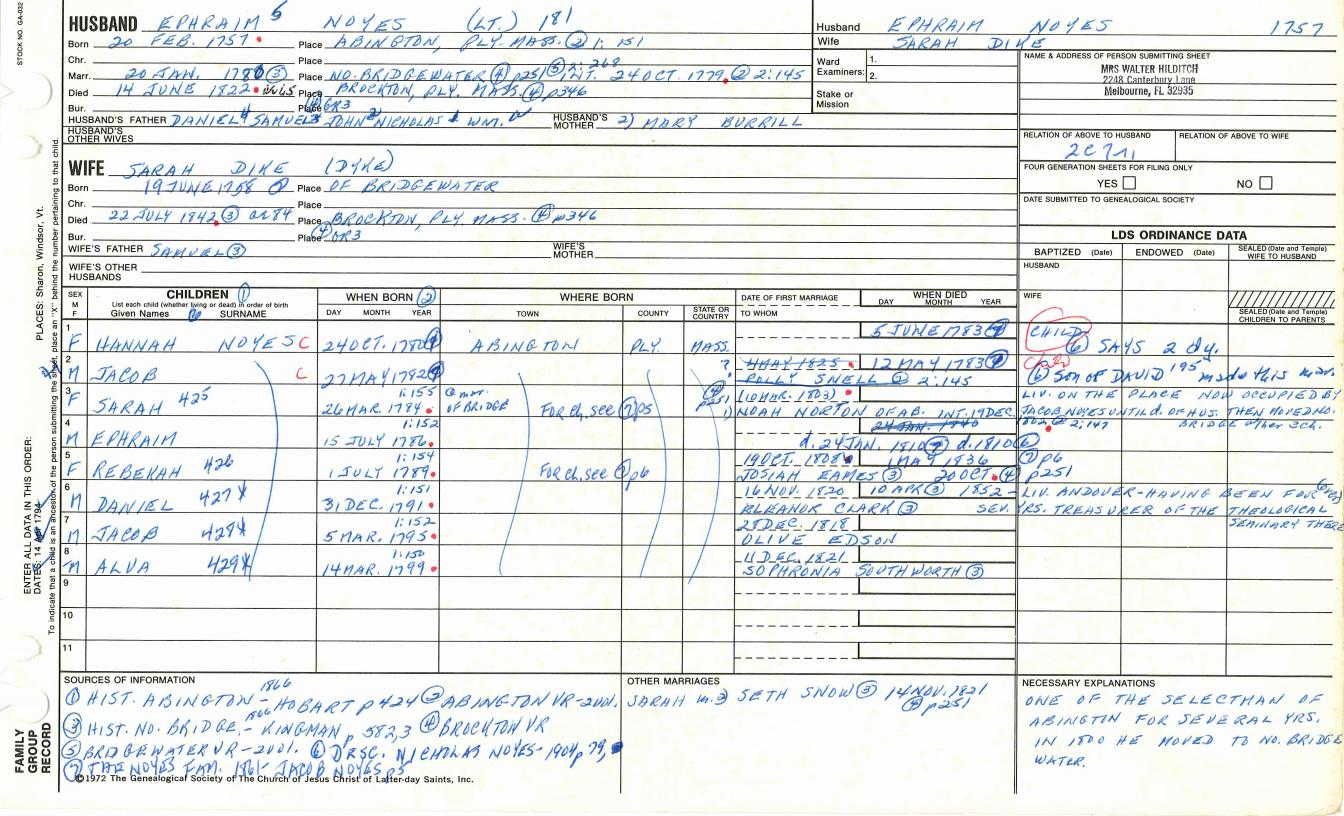 STOCK NO. GA-032
HUSBAND EPHRAIM 5 NOYES (LT.) 181
Born 20 FEB. 1757 Place ABINGTON, PLY. MASS. ② 1: 151
Chr. Place ⑤ 2: 268
Marr. 20 JAN. 1780 ③ Place NO. BRIDGEWATER ④ p251 INT. 24 OCT. 1779 ② 2:145
Died 14 JUNE 1822 Place BROCKTON, PLY. MASS. ④ p346
Bur. Place ④ GR3
HUSBAND'S FATHER DANIEL 4 SAMUEL 3 JOHN 2 NICHOLAS 1 WM. HUSBAND'S MOTHER 2) MARY BURRILL
HUSBAND'S OTHER WIVES
WIFE SARAH DIKE (DYKE)
Born 19 JUNE 1758 Place OF BRIDGEWATER
Chr. Place
Died 22 JULY 1842 ③ ae 84 Place BROCKTON, PLY. MASS. ④ p346
Bur. Place ④ GR3
WIFE'S FATHER SAMUEL ③ WIFE'S MOTHER
WIFE'S OTHER HUSBANDS
Husband EPHRAIM NOYES 1757
Wife SARAH DIKE
Ward Examiners: 1.
2.
Stake or Mission
NAME & ADDRESS OF PERSON SUBMITTING SHEET
MRS WALTER HILDITCH
2248 Canterbury Lane
Melbourne, FL 32935
RELATION OF ABOVE TO HUSBAND RELATION OF ABOVE TO WIFE
2C7r,
FOUR GENERATION SHEETS FOR FILING ONLY
YES NO
DATE SUBMITTED TO GENEALOGICAL SOCIETY
LDS ORDINANCE DATA
BAPTIZED (Date) ENDOWED (Date) SEALED (Date and Temple) WIFE TO HUSBAND
HUSBAND
WIFE
SEALED (Date and Temple) CHILDREN TO PARENTS
SEX M F CHILDREN ① WHEN BORN ② WHERE BORN DATE OF FIRST MARRIAGE WHEN DIED
List each child (whether living or dead) in order of birth
Given Names SURNAME DAY MONTH YEAR TOWN COUNTY STATE OR COUNTRY TO WHOM DAY MONTH YEAR
1 F HANNAH NOYES C 24 OCT. 1780 ABINGTON PLY. MASS. 5 JUNE 1783 CHILD ⑥ SAYS 2 dy.
2 M JACOB C 27 MAY 1782 ? 4 MAY 1825 12 MAY 1783 ⑥ SON OF DAVID 195 made this mar
? POLLY SNELL 2:145
3 F SARAH 425 1:155 26 MAR. 1784 @ mar. OF BRIDGE For ch, see ⑦ p5 ④ p251 (10 MAR. 1803) LIV. ON THE PLACE NOW OCCUPIED BY
1) NOAH NORTON OF AB. INT. 19 DEC. 1802 ② 2:147 JACOB NOYES UNTIL d. OF HUS. THEN MOVED NO. BRIDGE other 3 ch.
4 M EPHRAIM 1:152 15 JULY 1786 24 JAN. 1840
d. 24 JAN. 1810 ⑦ d. 1810 ⑥
5 F REBEKAH 426 1:154 1 JULY 1789 For ch, see ⑦ p6 19 OCT. 1808 1 MAY 1836 ⑦ p6
JOSIAH EAMES ③ 20 OCT. ④ p251
6 M DANIEL 427 1:151 31 DEC. 1791 16 NOV. 1820 10 APR ③ 1852 - LIV. ANDOVER - HAVING BEEN FOR
ELEANOR CLARK ③ SEV. YRS. TREASURER OF THE THEOLOGICAL SEMINARY THERE
7 M JACOB 428 1:152 5 MAR. 1795 28 DEC. 1818
OLIVE EDSON
8 M ALVA 429 1:150 14 MAR. 1799 11 DEC. 1821
SOPHRONIA SOUTHWORTH ③
9
10
11
SOURCES OF INFORMATION
① HIST. ABINGTON - 1866 HOBART p 424 ② ABINGTON VR - 2 vol.
③ HIST. NO. BRIDGE. - 1866 KINGMAN p 582,3 ④ BROCKTON VR
⑤ BRIDGEWATER VR - 2 vol. ⑥ DESC. NICHOLAS NOYES - 1904 p 79,
⑦ THE NOYES FAM. 1861 - JACOB NOYES p5
OTHER MARRIAGES
SARAH m. 2) SETH SNOW ③ 14 NOV. 1821
④ p251
NECESSARY EXPLANATIONS
ONE OF THE SELECTMAN OF
ABINGTIN FOR SEVERAL YRS.
IN 1800 HE MOVED TO NO. BRIDGE
WATER.
©1972 The Genealogical Society of The Church of Jesus Christ of Latter-day Saints, Inc.
FAMILY GROUP RECORD
ENTER ALL DATA IN THIS ORDER:
DATES: 14 Apr 1794
PLACES: Sharon, Windsor, Vt.
To indicate that a child is an ancestor of the person submitting the sheet, place an "X" behind the number pertaining to that child.